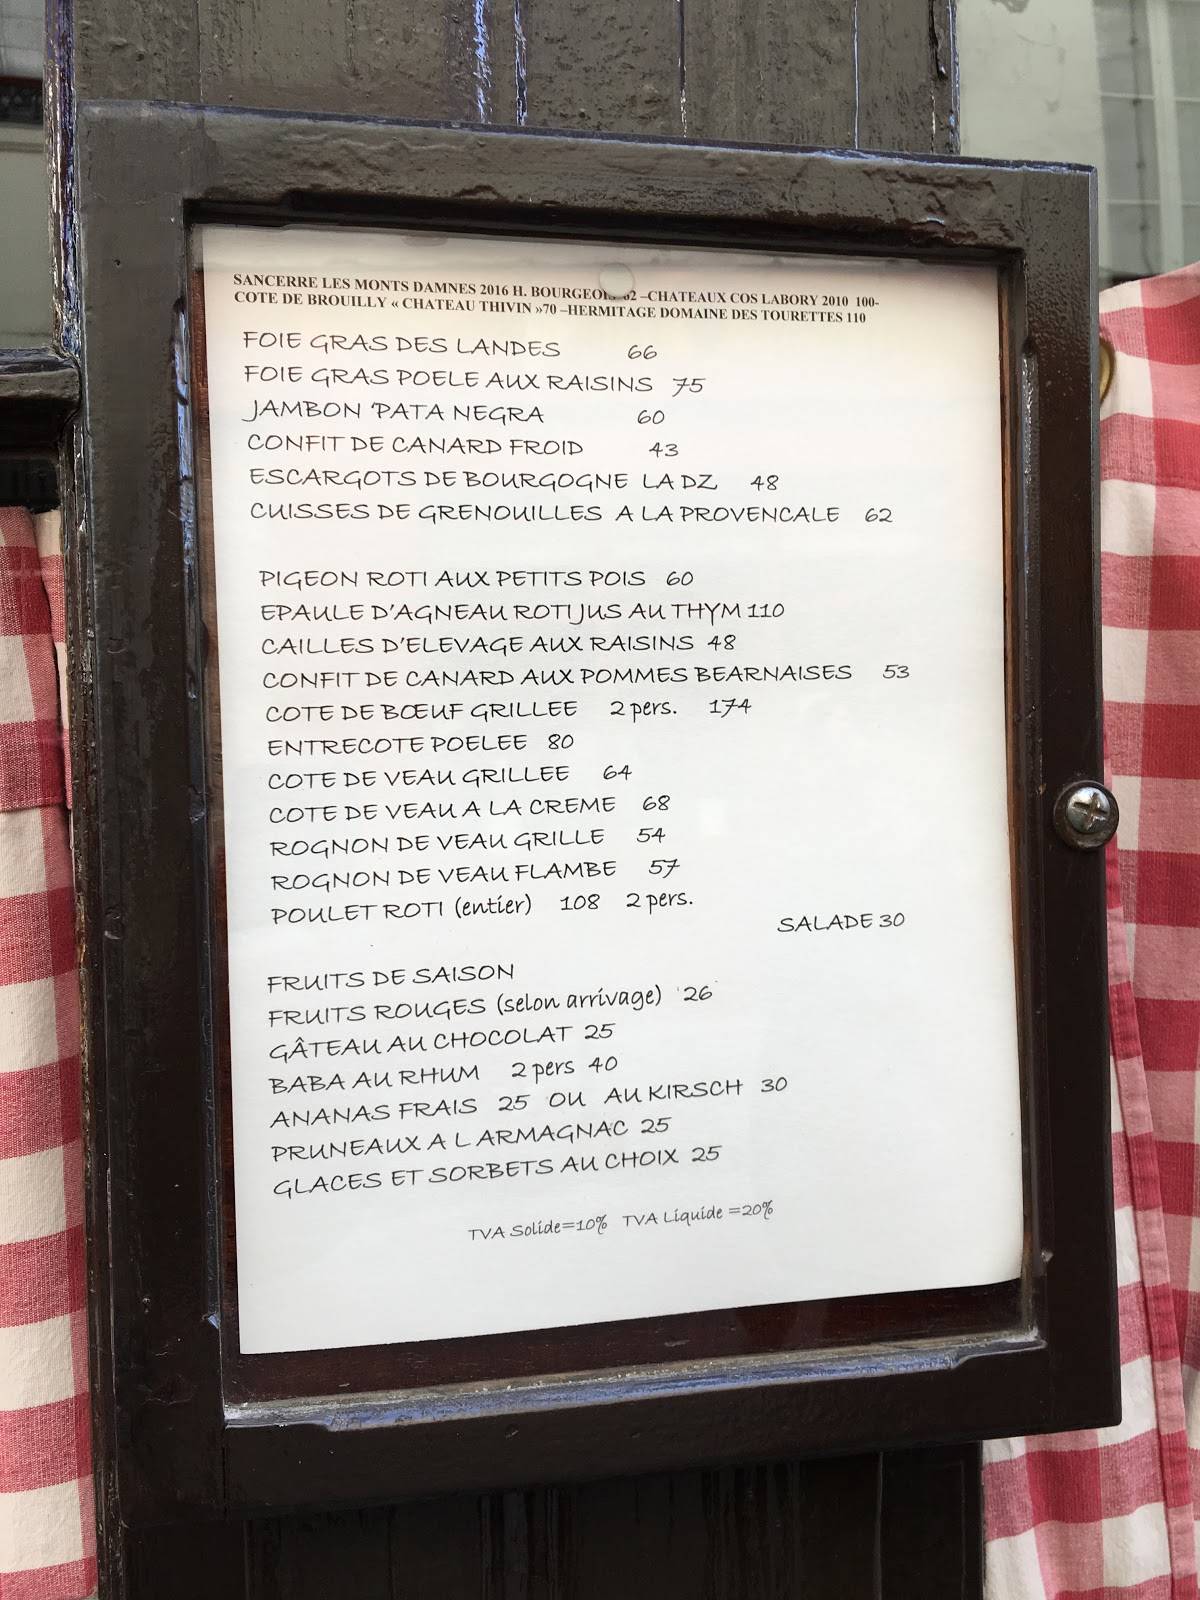 SANCERRE LES MONTS DAMNES 2016 H. BOURGEOIS 62 –CHATEAUX COS LABORY 2010 100-
COTE DE BROUILLY « CHATEAU THIVIN »70 –HERMITAGE DOMAINE DES TOURETTES 110
FOIE GRAS DES LANDES 66
FOIE GRAS POELE AUX RAISINS 75
JAMBON 'PATA NEGRA 60
CONFIT DE CANARD FROID 43
ESCARGOTS DE BOURGOGNE LA DZ 48
CUISSES DE GRENOUILLES A LA PROVENCALE 62
PIGEON ROTI AUX PETITS POIS 60
EPAULE D'AGNEAU ROTI JUS AU THYM 110
CAILLES D'ELEVAGE AUX RAISINS 48
CONFIT DE CANARD AUX POMMES BEARNAISES 53
COTE DE BŒUF GRILLEE 2 pers. 174
ENTRECOTE POELEE 80
COTE DE VEAU GRILLEE 64
COTE DE VEAU A LA CREME 68
ROGNON DE VEAU GRILLE 54
ROGNON DE VEAU FLAMBE 57
POULET ROTI (entier) 108 2 pers.
SALADE 30
FRUITS DE SAISON
FRUITS ROUGES (selon arrivage) 26
GÂTEAU AU CHOCOLAT 25
BABA AU RHUM 2 pers 40
ANANAS FRAIS 25 OU AU KIRSCH 30
PRUNEAUX A L ARMAGNAC 25
GLACES ET SORBETS AU CHOIX 25
TVA Solide=10% TVA Liquide =20%